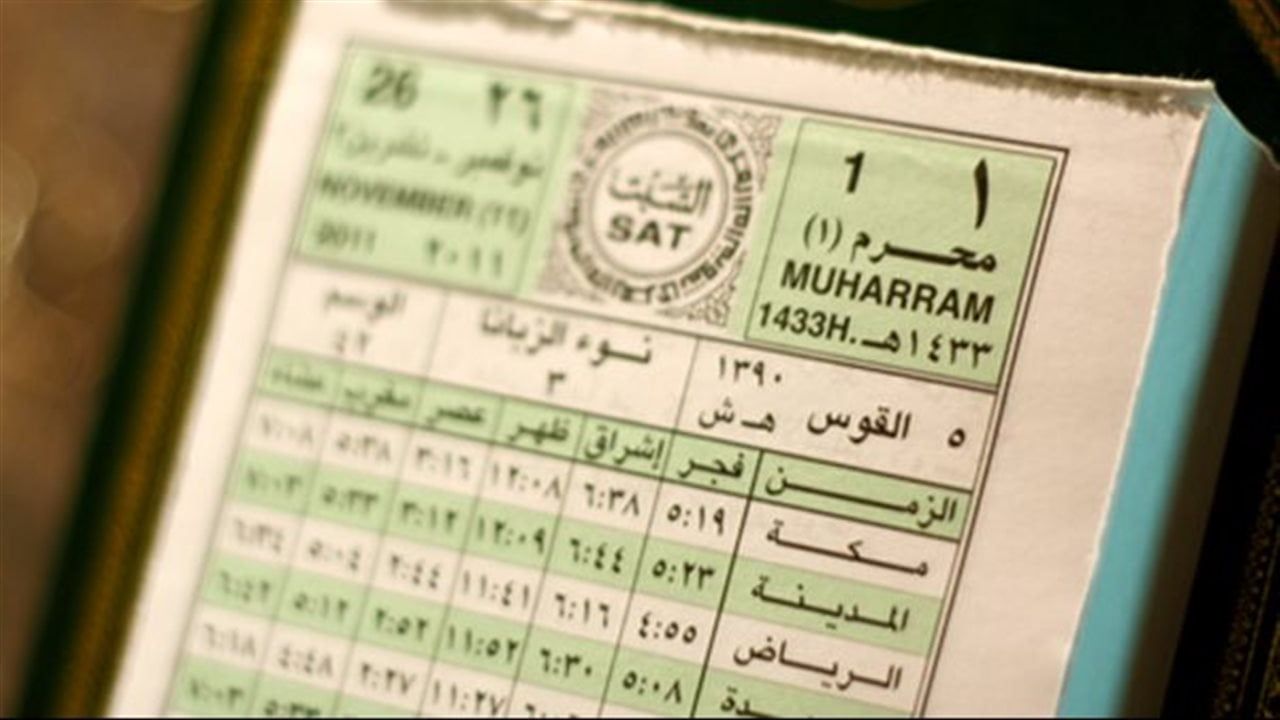 ١ 1
محرم (١)
MUHARRAM
1433H. ١٤٣٣هـ
السبت
SAT
٢٦ 26
نوفمبر - تشرين٢
NOVEMBER (11)
٢٠١١ 2011
٥ القوس ١٣٩٠ هـ ش
نوء الزبانا
٣
الوسم
٤٢
الزمن فجر إشراق ظهر عصر مغرب عشاء
مكة ٥:١٩ ٦:٣٨ ١٢:٠٨ ٣:١٦ ٥:٣٨ ٧:٠٨
المدينة ٥:٢٣ ٦:٤٤ ١٢:٠٩ ٣:١٢ ٥:٣٣ ٧:٠٣
الرياض ٤:٥٥ ٦:١٦ ١١:٤١ ٢:٤٤ ٥:٠٤ ٦:٣٤
٥:٠٨ ٦:٣٠ ١١:٥٢ ٢:٥٢ ٥:١٢ ٦:٤٢
١١:٢٧ ٢:٢٧ ٤:٤٨ ٦:١٨
٥:٣٣ ٧:٠٣